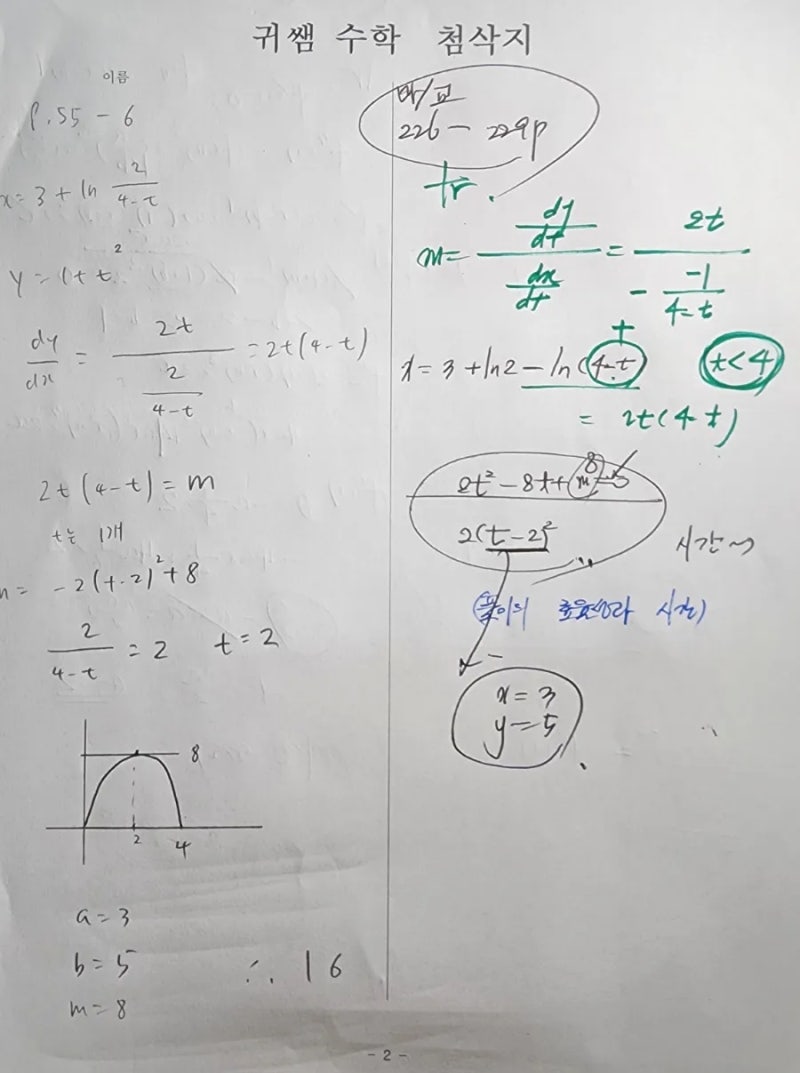 귀쌤 수학 첨삭지
이름
P.55 - 6
x = 3 + ln 2/(4-t)
y = 1 + t²
dy/dx = 2t / (2/(4-t)) = 2t(4-t)
2t(4-t) = m
t는 1개
m = -2(t-2)² + 8
2/(4-t) = 2  t = 2
8
2
4
a = 3
b = 5  ∴ 16
m = 8
226 - 229p
tr.
m = (dy/dt)/(dx/dt) = 2t / (- (-1)/(4-t))
x = 3 + ln2 - ln(4-t)  t<4
+
= 2t(4-t)
8
2t² - 8t + m = 0
2(t-2)²
시간~
시간)
x = 3
y = 5
- 2 -